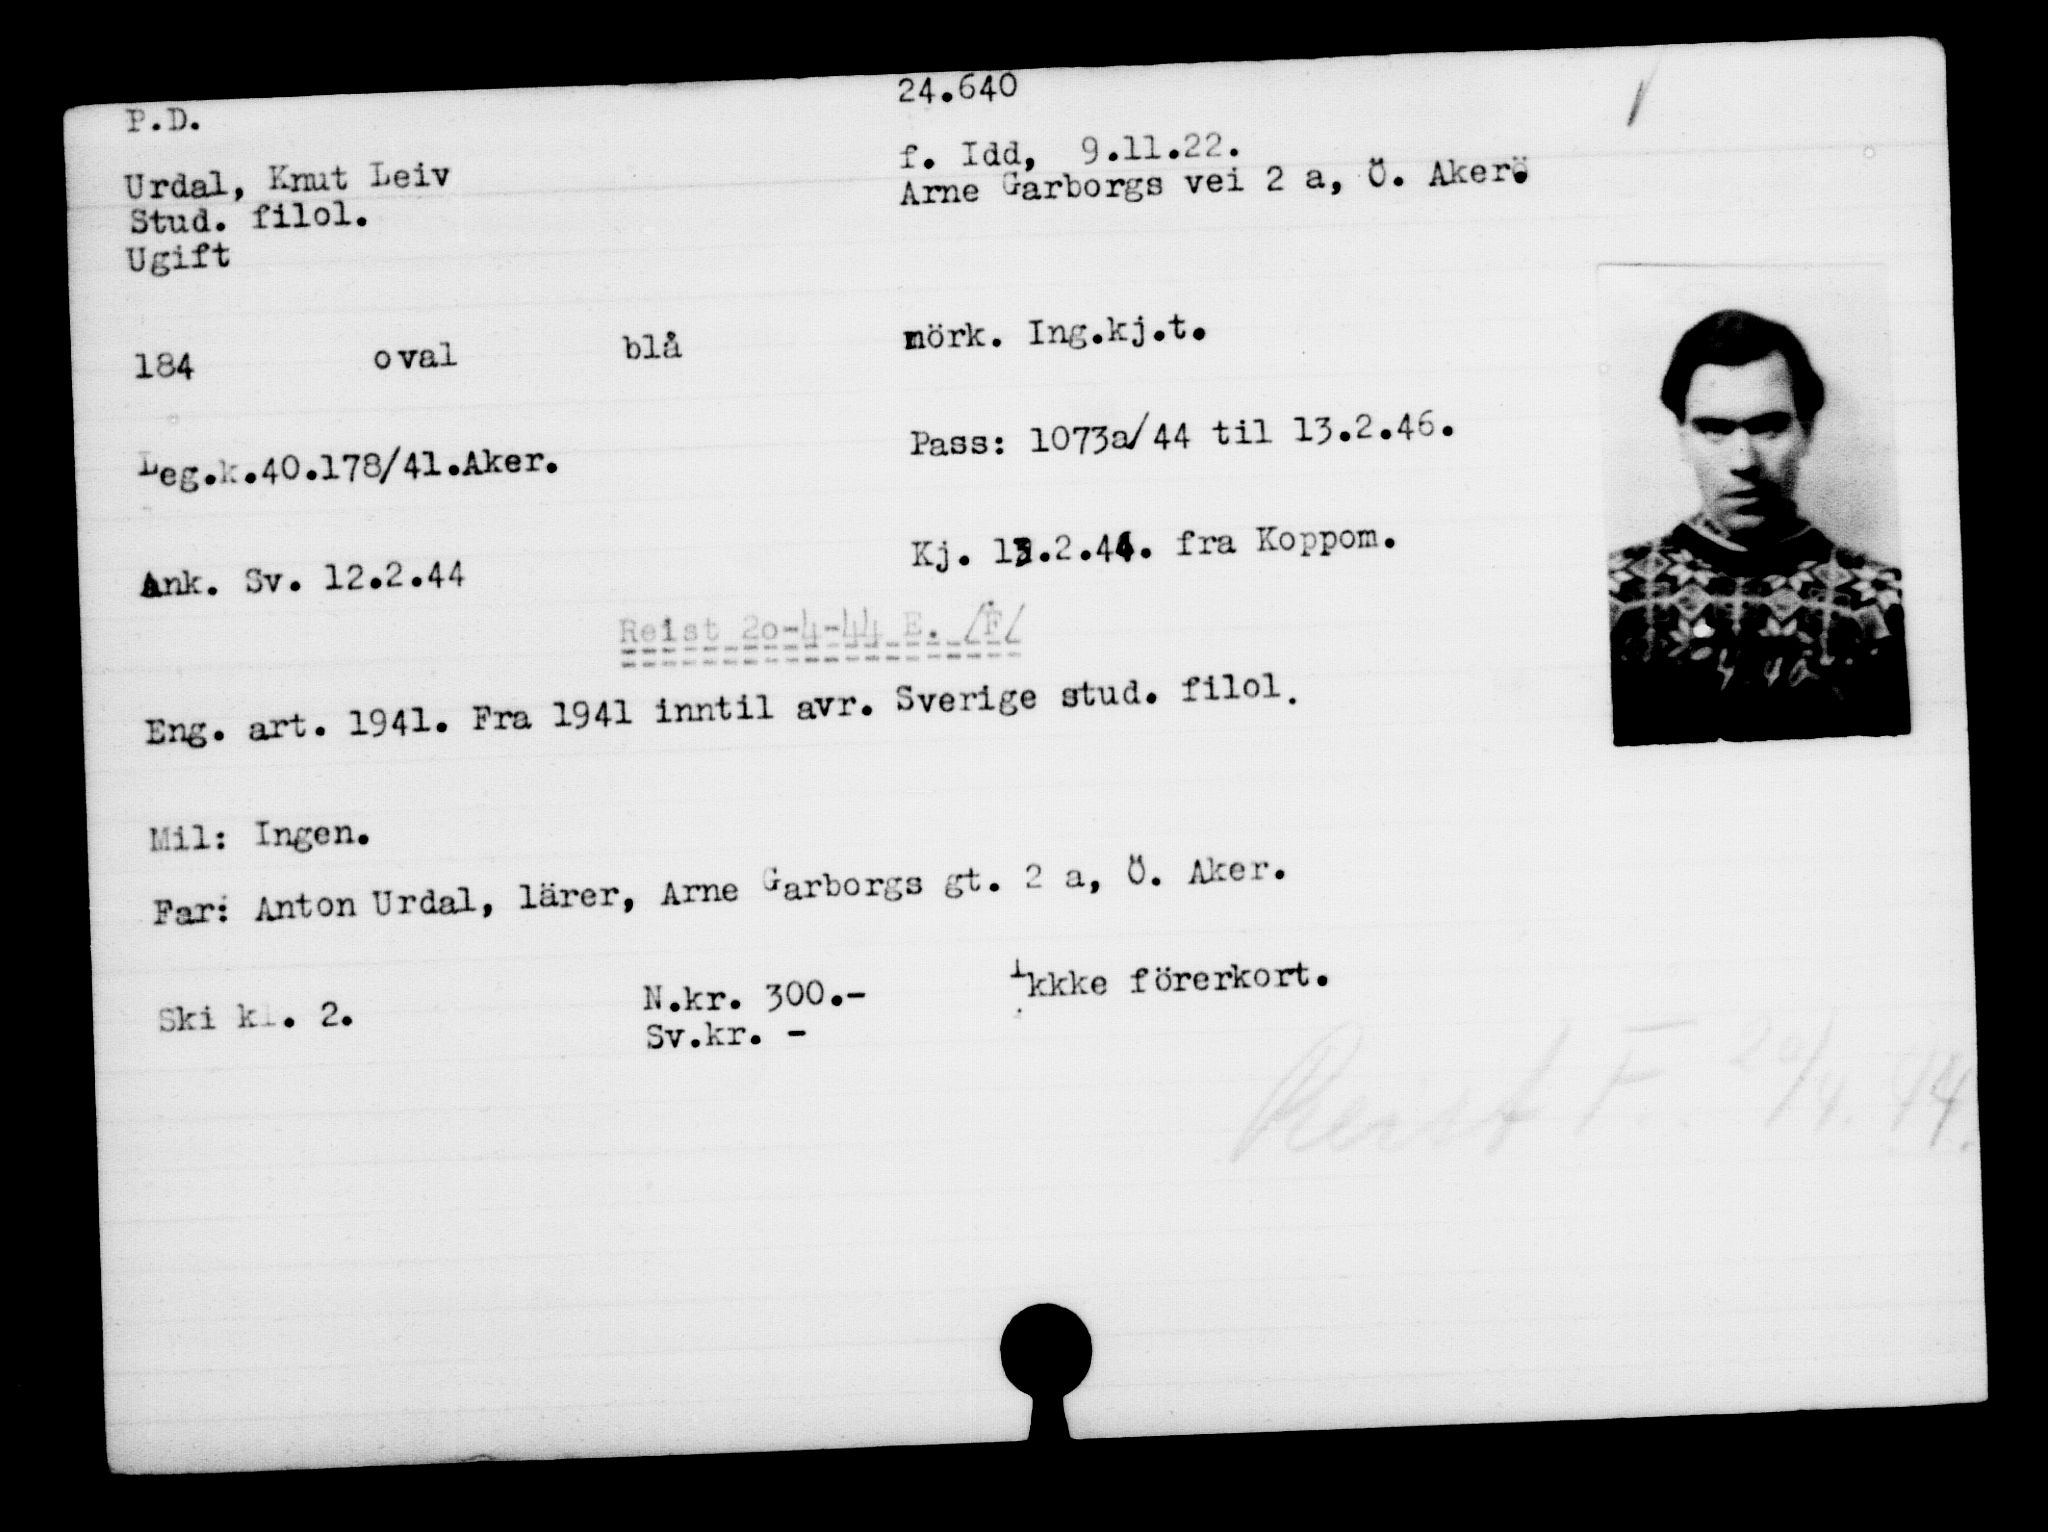 P.D. 24.640
Urdal, Knut Leiv f. Idd, 9.11.22.
Stud. filol. Arne Garborgs vei 2 a, Ö. Aker.
Ugift
184 oval blå mörk. Ing.kj.t.
Leg.k.40.178/41.Aker. Pass: 1073a/44 til 13.2.46.
Ank. Sv. 12.2.44 Kj. .2.44. fra Koppom.
Reist 2o-4-44 E. /F/
Eng. art. 1941. Fra 1941 inntil avr. Sverige stud. filol.
Mil: Ingen.
Far: Anton Urdal, lärer, Arne Garborgs gt. 2 a, Ö. Aker.
Ski kl. 2. N.kr. 300.- Ikkke förerkort.
Sv.kr. -
Reist F. 20/4. 44.